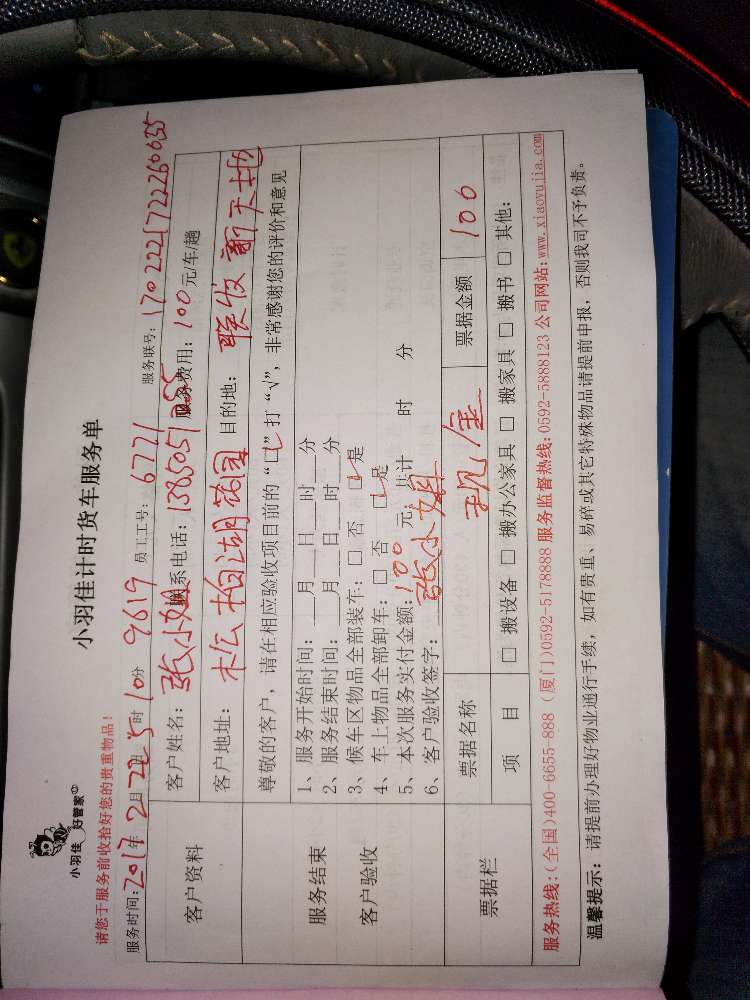 小羽佳 好管家
小羽佳计时货车服务单
请您于服务前收拾好您的贵重物品!
服务时间: 2017年2月22日5时10分 9619 员工工号: 6721 服务联号: 1702221722260635
客户资料
客户姓名: 张小姐 联系电话: 服务费用: 100元/车/趟
客户地址: 松柏湖花园 目的地: 联发新天地
服务结束
客户验收
尊敬的客户, 请在相应验收项目前的“□”打“√”, 非常感谢您的评价和意见
1、服务开始时间: __月__日__时__分
2、服务结束时间: __月__日__时__分
3、候车区物品全部装车: □ 否 □ 是
4、车上物品全部卸车: □ 否 □ 是
5、本次服务实付金额: 100 元; 共计 时 分
6、客户验收签字: 张小姐
票据栏
票据名称 现金 票据金额 100
项 目 □ 搬设备 □ 搬办公家具 □ 搬家具 □ 搬书 □ 其他:
服务热线:(全国)400-6655-888 (厦门)0592-5178888 服务监督热线:0592-5888123 公司网站:www.xiaoyujia.com
温馨提示: 请提前办理好物业通行手续, 如有贵重、易碎或其它特殊物品请提前申报, 否则我司不予负责。